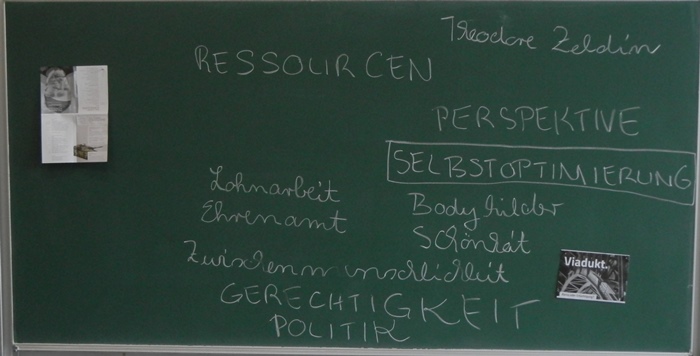 Theodore Zeldin
RESSOURCEN
PERSPEKTIVE
SELBSTOPTIMIERUNG
Lohnarbeit
Ehrenamt
Bodybilder
Schönhät
Zwischenmenschlichkeit
GERECHTIGKEIT
POLITIK
Viadukt.